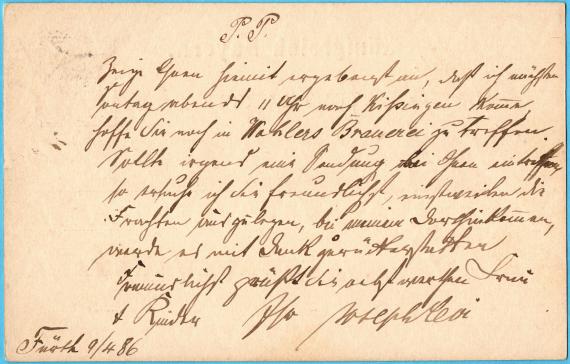 P. P.
Zeige Ihnen hiermit ergebenst an, daß ich nächsten
Sontag abends 11 Uhr nach Kissingen komme
hoffe Sie noch in Wahlers Brauerei zu treffen.
Sollte irgend eine Sendung bei Ihnen eintreffen
so ersuche ich Sie freundlichst, einstweilen die
Frachten auszulegen, bei meinem Dorthinkommen,
werde es mit Dank zurückerstatten
Freundlichst grüßt Sie nebst werthen Frau
& Kinder Ihr Joseph Levi
Fürth 9/4 86